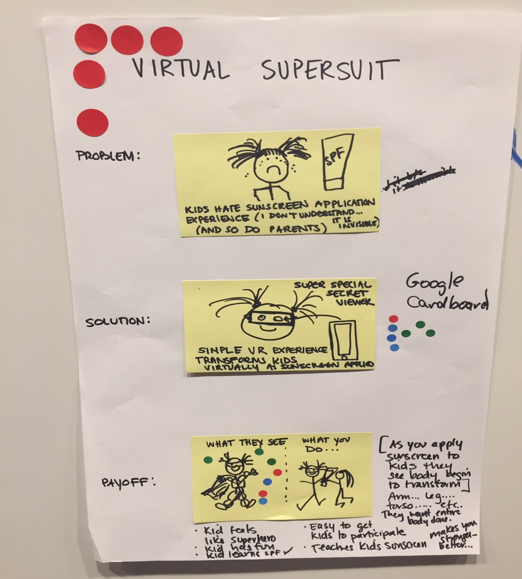 VIRTUAL SUPERSUIT
PROBLEM:
SPF
KIDS HATE SUNSCREEN APPLICATION
EXPERIENCE (I DON'T UNDERSTAND... IT IS INVISIBLE)
(AND SO DO PARENTS)
SOLUTION:
SUPER SPECIAL
SECRET
VIEWER
SIMPLE VR EXPERIENCE
TRANSFORMS KIDS
VIRTUALLY AS SUNSCREEN APPLIED
Google
Cardboard
PAYOFF:
WHAT THEY SEE
WHAT YOU
DO...
[As you apply
sunscreen to
kids they
see body begin
to transform]
Arm... leg...
torso... etc.
They want entire
body done.
• Kid feels
like superhero
• Kid has fun
• Kid learns SPF ✓
• Easy to get
kids to participate
• Teaches kids sunscreen makes you
stronger
better...